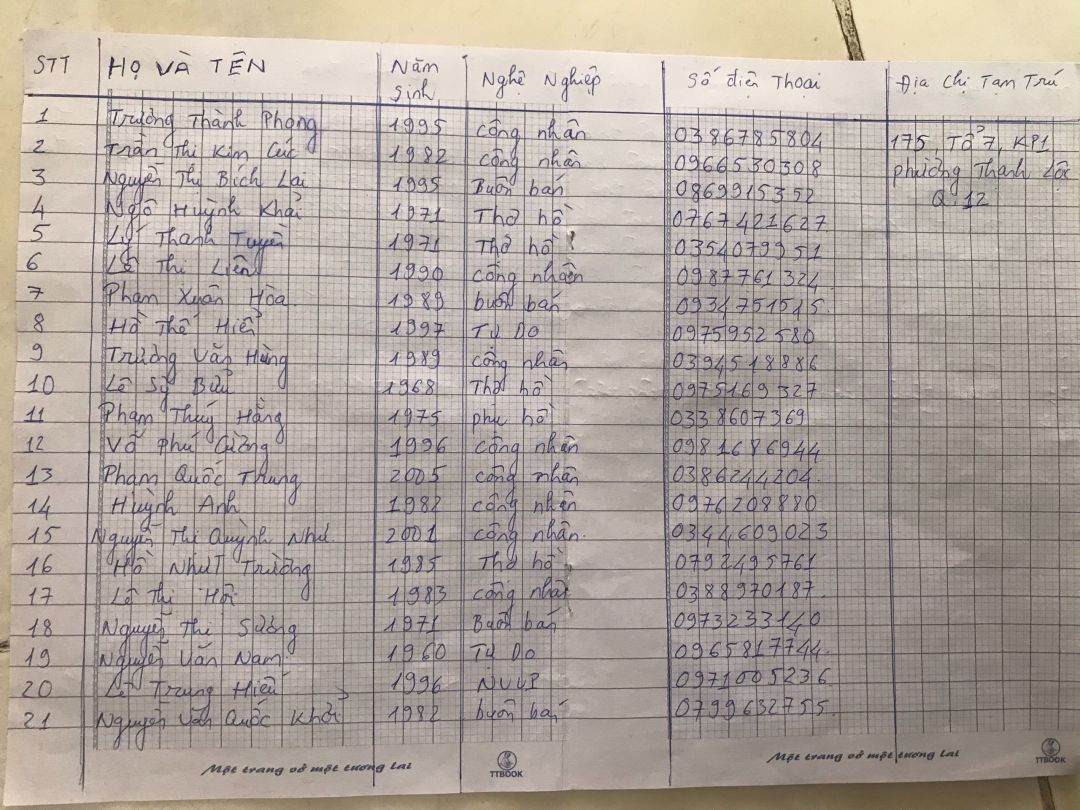 STT HỌ VÀ TÊN Năm Sinh Nghề Nghiệp Số điện Thoại Địa Chỉ Tạm Trú
1 Trương Thành Phong 1995 công nhân 0386785804 175, Tổ 7, KP1
2 Trần Thị Kim Cúc 1982 công nhân 0966530308 phường Thạnh Lộc
3 Nguyễn Thị Bích Lai 1995 Buôn bán 0869915352 Q.12
4 Ngô Huỳnh Khải 1971 Thợ hồ 0767421627
5 Lý Thanh Tuyền 1971 Thợ hồ 0354079951
6 Lê Thị Liên 1990 công nhân 0987761324
7 Phạm Xuân Hòa 1989 buôn bán 0934751515
8 Hồ Thế Hiển 1997 Tự Do 0975952580
9 Trương Văn Hùng 1989 công nhân 0394518886
10 Lê Sỹ Bửu 1968 Thợ hồ 0975169327
11 Phạm Thúy Hằng 1975 phụ hồ 0338607369
12 Võ Phú Cường 1996 công nhân 0981686944
13 Phạm Quốc Trung 2005 công nhân 0386244204.
14 Huỳnh Anh 1982 công nhân 0976208880
15 Nguyễn Thị Quỳnh Như 2001 công nhân. 0344609023
16 Hồ Nhựt Trường 1985 Thợ hồ 0792495761
17 Lê Thị Hội 1983 công nhân 0388970187.
18 Nguyễn Thị Sương 1971 Buôn bán 0973233140
19 Nguyễn Văn Nam 1960 Tự Do 0965817744.
20 Lê Trung Hiếu 1996 NVVP 0971005236
21 Nguyễn Văn Quốc Khởi 1982 buôn bán 0799632755.
Một trang vở một tương lai TTBOOK Một trang vở một tương lai TTBOOK